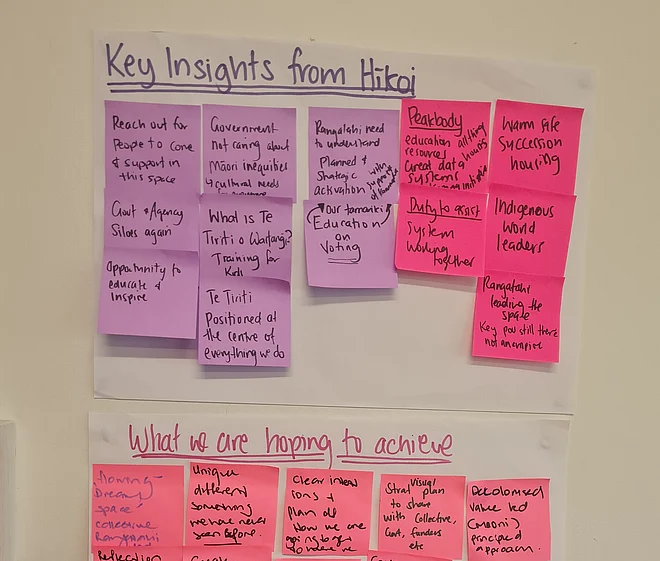 Key Insights from Hīkoi
Reach out for
people to come
& support in
this space
Govt & Agency
Siloes again
Opportunity to
educate &
Inspire
Government
not caring about
Māori inequities
& cultural needs
What is Te
Tiriti o Waitangi?
Training for
Te Tiriti
Positioned at
the centre of
everything we do
Rangatahi need
to understand
Planned &
Strategic
activation
with
support
of
Our tamariki
Education
on
Voting
Peakbody
education all things
resources housing
Great data
systems
Duty to assist
System
Working
together
Warm safe
Succession
housing
Indigenous
World
leaders
Rangatahi
leading the
space
Key pou still there
not an empire
What we are hoping to achieve
Flowing
Dreamy
Space
collective
Unique
different
Something
we have never
seen before.
Clear intent
ions &
Plan of
How we are
going to
Visual
Strat plan
to share
with Collective,
Govt, funders
etc
Decolonised
Value led
principled
approach.
Reflection